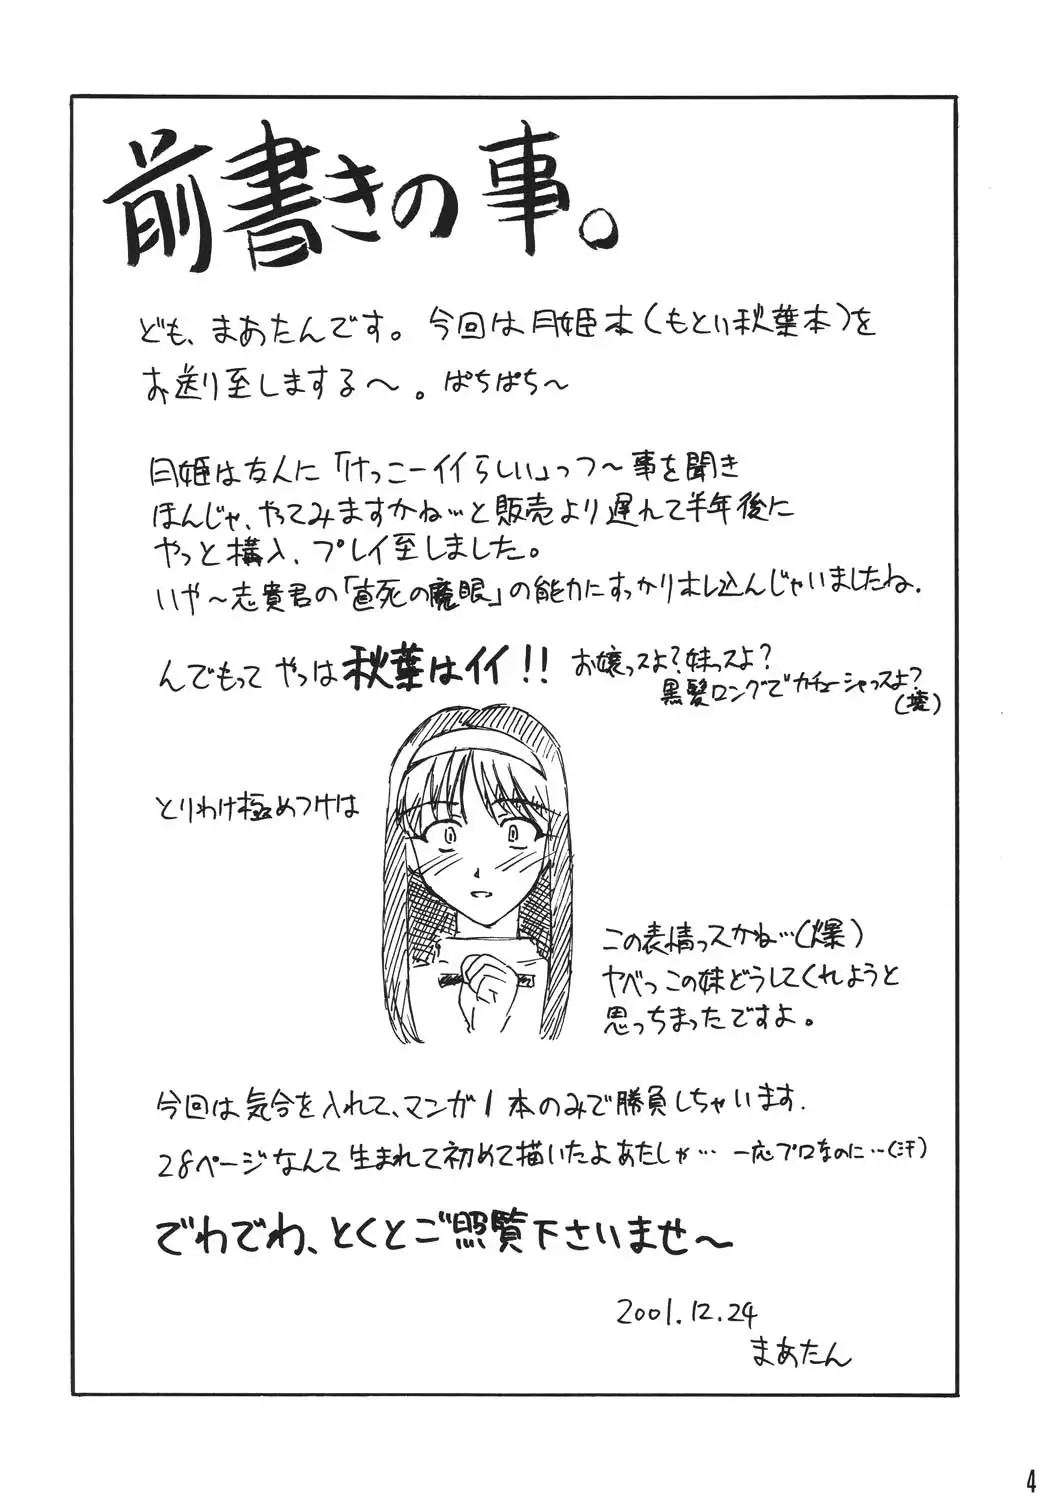 前書きの事。
ども、まあたんです。今回は月姫本(もとい秋葉本)を
お送り至しまする〜。ぱちぱち〜
月姫は友人に「けっこーイイらしい」っつ〜事を聞き
ほんじゃ、やってみますかね…と販売より遅れて半年後に
やっと購入、プレイ至しました。
いや〜志貴君の「直死の魔眼」の能力にすっかりホレ込んじゃいましたね.
んでもって やっは 秋葉はイイ!! お嬢っスよ?妹っスよ?
黒髪ロングでカチューシャっスよ?
(壊)
とりわけ極めつけは
この表情っスかね…(爆)
ヤベっこの妹どうしてくれようと
思っちまったですよ。
今回は気合を入れて、マンガ1本のみで勝負しちゃいます.
28ページなんて生まれて初めて描いたよあたしゃ… 一応プロなのに…(汗)
でわでわ、とくとご照覧下さいませ〜
2001.12.24
まあたん
4